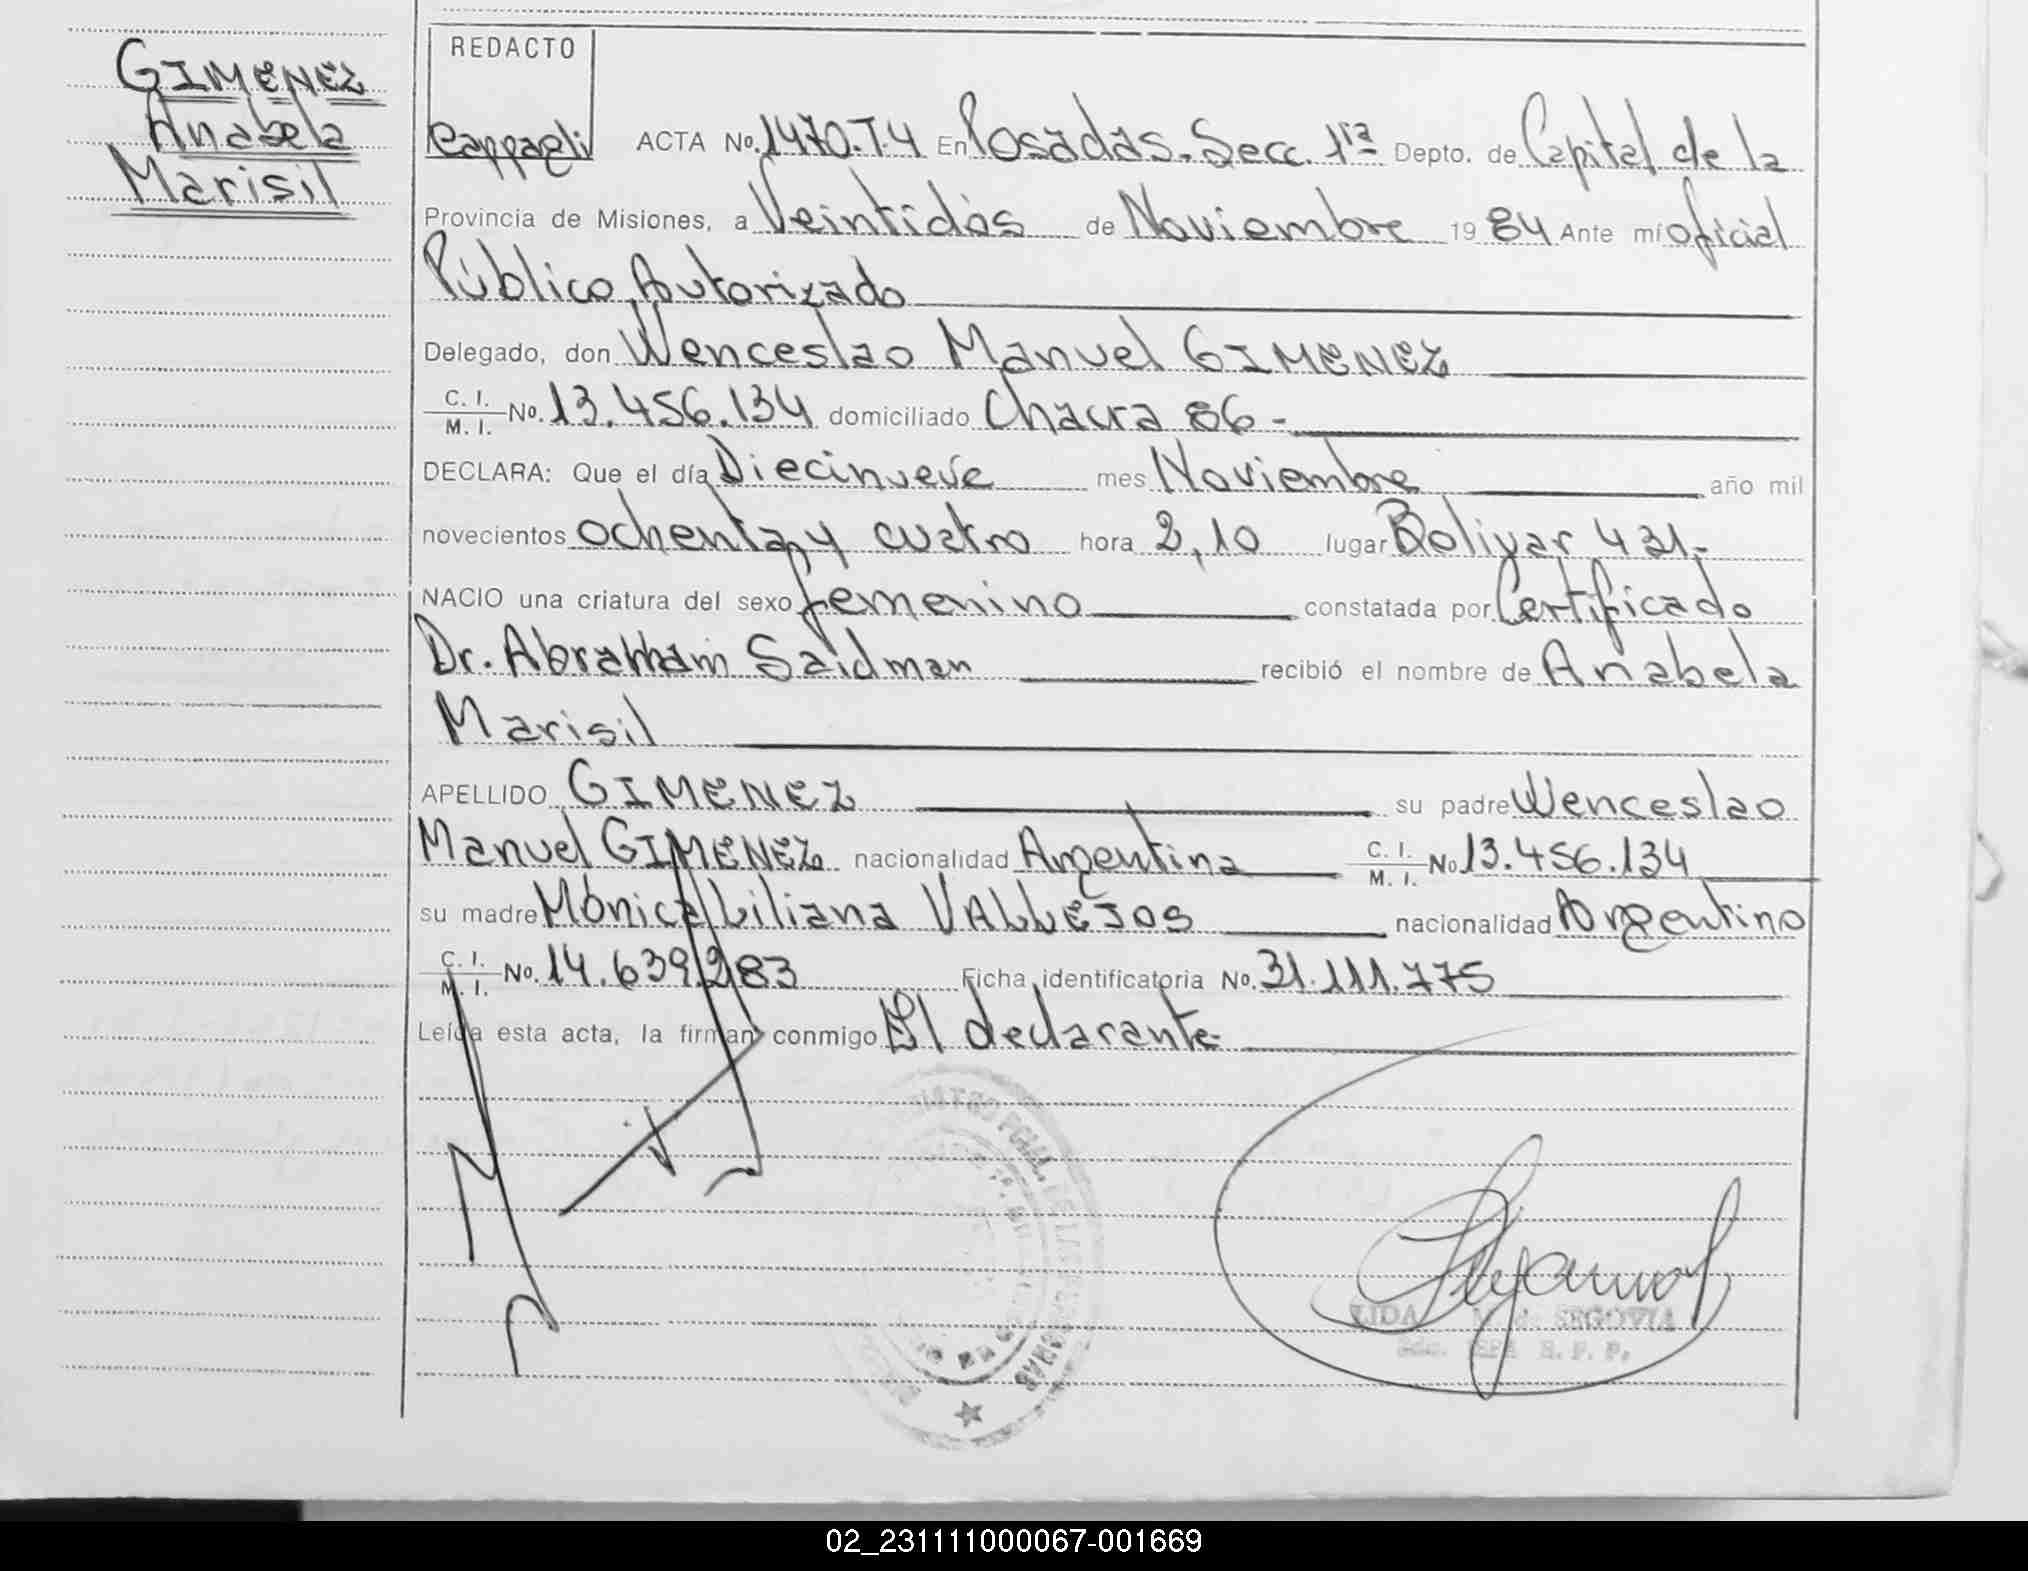 GIMENEZ
Anabela
Marisil
REDACTO
Cappagli
ACTA No. 1470.T.4 En Posadas. Secc. 1ra Depto. de Capital de la
Provincia de Misiones, a Veintidós de Noviembre 1984 Ante mí oficial
Público Autorizado
Delegado, don Wenceslao Manuel GIMENEZ
C. I.
M. I. No. 13.456.134 domiciliado Chacra 86-
DECLARA: Que el día Diecinueve mes Noviembre año mil
novecientos ochenta y cuatro hora 2,10 lugar Bolivar 431.-
NACIO una criatura del sexo femenino constatada por Certificado
Dr. Abraham Saidman recibió el nombre de Anabela
Marisil
APELLIDO GIMENEZ su padre Wenceslao
Manuel GIMENEZ nacionalidad Argentina C. I.
M. I. No 13.456.134
su madre Mónica Liliana VALLEJOS nacionalidad Argentino
C. I.
M. I. No. 14.639.283 Ficha identificatoria No. 31.111.775
Leída esta acta, la firman conmigo El declarante-
LIDA M. de SEGOVIA
R. P. P.
02_231111000067-001669